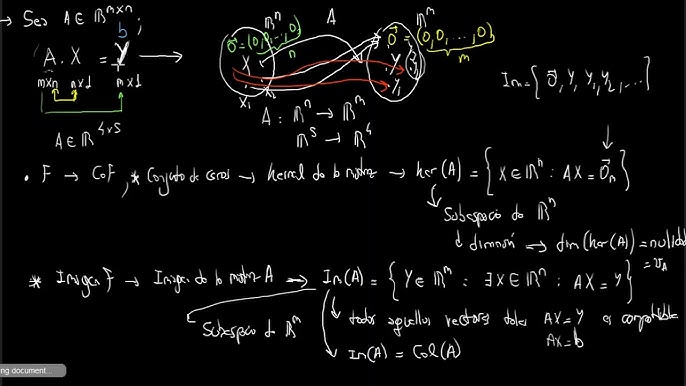 → Sea A ∈ ℝ^{m×n};
b
A . X = Y →
m×n n×1 m×1
A ∈ ℝ^{4×5}
ℝ^n A ℝ^m
0⃗ = (0,0,...,0) 0⃗ = (0,0,...,0)
n m
X Y
X₁ Y₁
A : ℝ^n → ℝ^m
ℝ^5 → ℝ^4
Im = { 0⃗, Y, Y₁, Y₂, ... }
• F → CoF, * Conjunto de ceros → kernel de la matriz → ker(A) = { X ∈ ℝ^n : AX = 0⃗_m }
Subespacio de ℝ^n
dimensión → dim(ker(A)) = nulidad
= υ_A
* Imagen F → Imagen de la matriz A → Im(A) = { Y ∈ ℝ^m : ∃X ∈ ℝ^n : AX = Y }
Subespacio de ℝ^m
todos aquellos vectores tales AX = Y es compatible
AX = b
Im(A) = Col(A)
ng document...